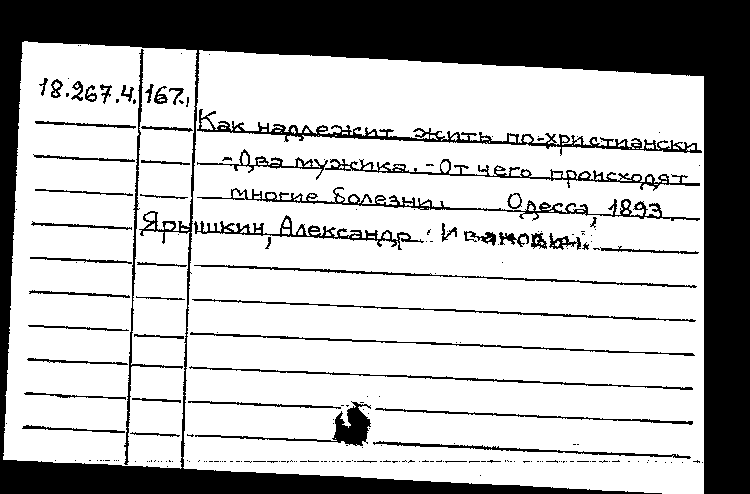 18.267.4.167.,
Как надлежит жить по-христиански
-Два мужика.-От чего происходят
многие болезни. Одесса, 1893.
Ярышкин, Александр Иванович.